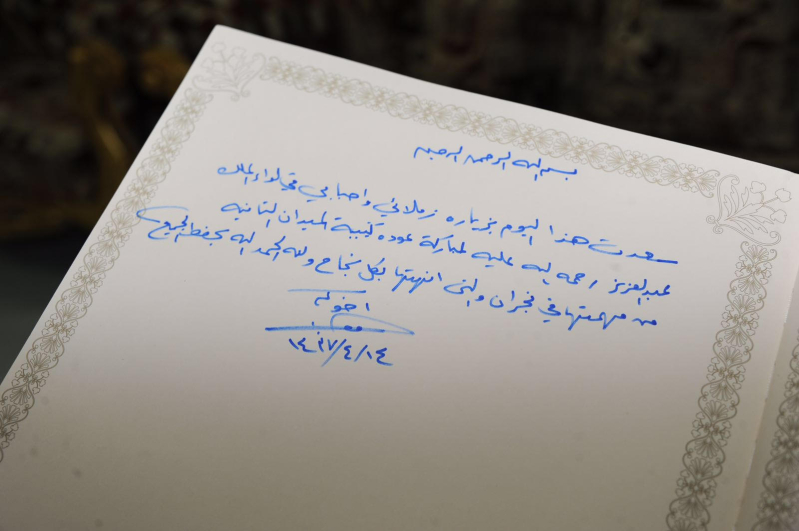 بسم الله الرحمن الرحيم
سعدت هذا اليوم بزياره زملائي واحبابي في لواء الملك
عبدالعزيز رحمه الله عليه لمباركة عوده كتيبة الميدان الثانيه
من مهمتها في نجران والتى انهتها بكل نجاح ولله الحمد الله يحفظ الجميع
اخوكم
١٤٣٧/٤/١٤